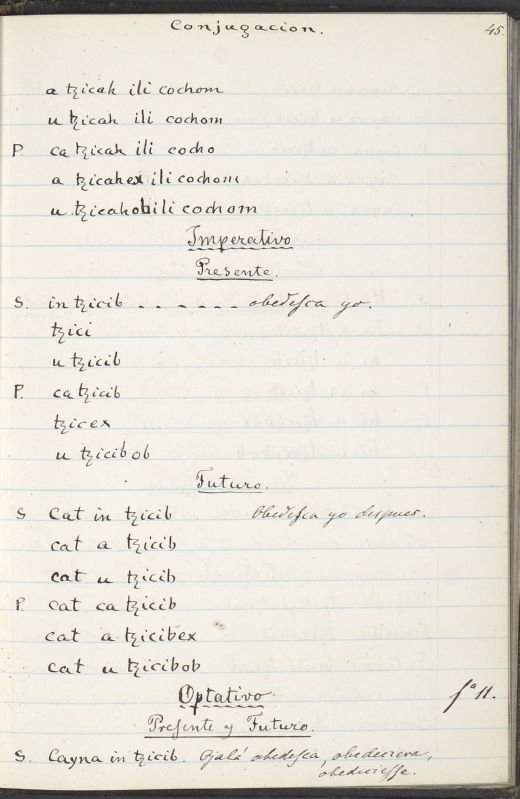 Conjugacion.
45.
a tzicah ili cochom
u tzicah ili cochom
P. ca tzicah ili cocho
a tzicahex ili cochom
u tzicahob ili cochom
Imperativo
Presente.
S. in tzicib . . . . . . obedesca yo.
tzici
u tzicib
P. ca tzicib
tzicex
u tzicib ob
Futuro.
S Cat in tzicib Obedesca yo despues.
cat a tzicib
cat u tzicib
P. cat ca tzicib
cat a tzicibex
cat u tzicibob
Optativo.
fª 11.
Presente y Futuro.
S. Cayna in tzicib. Ojalá obedesca, obedeciera,
obedeciesse.